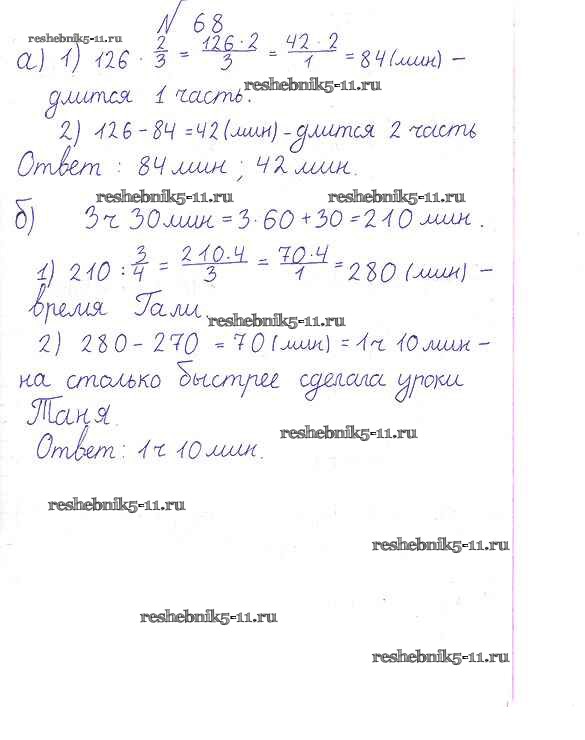 № 68
reshebnik5-11.ru
а) 1) 126 · 2/3 = 126·2/3 = 42·2/1 = 84 (мин) –
reshebnik5-11.ru
длится 1 часть.
2) 126 – 84 = 42 (мин) – длится 2 часть
Ответ : 84 мин ; 42 мин.
reshebnik5-11.ru reshebnik5-11.ru
б) 3ч 30мин = 3·60 + 30 = 210 мин.
1) 210 : 3/4 = 210·4/3 = 70·4/1 = 280 (мин) –
время Гали.
reshebnik5-11.ru
2) 280 – 270 = 70 (мин) = 1ч 10мин –
на столько быстрее сделала уроки
Таня.
reshebnik5-11.ru
Ответ: 1ч 10мин.
reshebnik5-11.ru
reshebnik5-11.ru
reshebnik5-11.ru
reshebnik5-11.ru